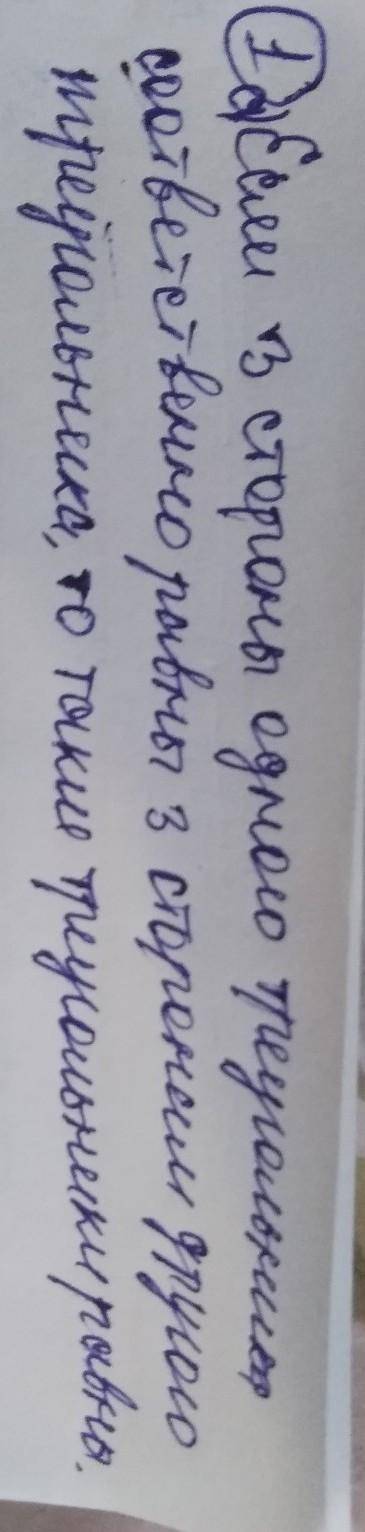 1 а) Если 3 стороны одного треугольника
соответственно равны 3 сторонам другого
треугольника, то такие треугольники равны.